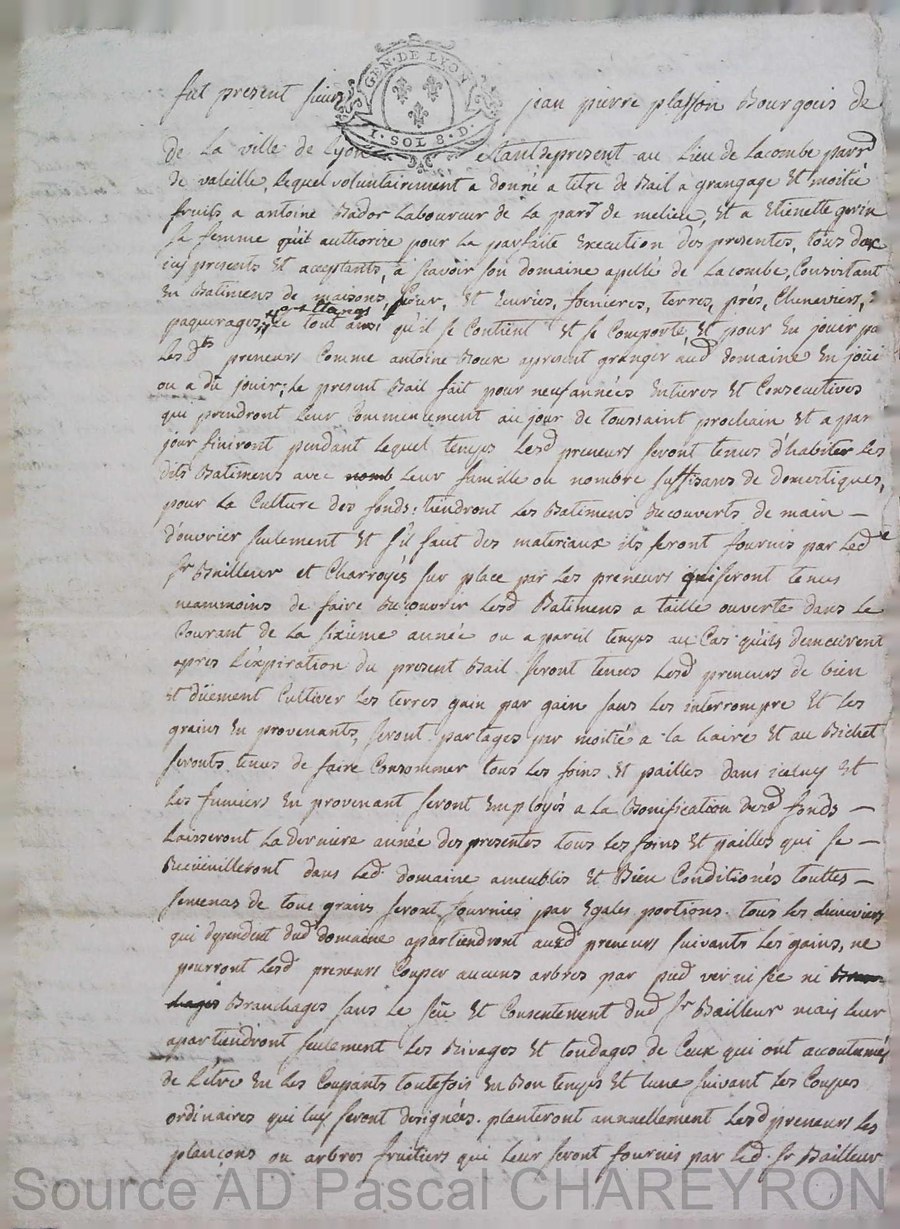 GEN · DE LYON
I · SOL 8 · D
fut present sieur jean pierre plasson Bourgois de
de La ville de Lyon Etant de present au Lieu de Lacombe parr.d
de valeille, Lequel volontairement a donné a titre de Bail a grangage Et moitié
fruits a antoine Bador Laboureur de La parr.e de melieu, Et a Etienette gerin
sa femme qu'il authorize pour La parfaite Execution des presentes, tous deux
icy presents Et acceptants, a scavoir son domaine apellé de Lacombe, Consistant
En Batimens de maisons, cour, Et Ecuries, fenieres, terres, prés, Chenevier,
et Etangs
paquerages, Le tout ainsi qu'il se Contient Et se Comporte, Et pour En jouir pa
Lesd.ts preneurs Comme antoine Boux apresent granger aud domaine En joüi
ou a dû jouir; Le present Bail fait pour neuf années Entieres Et Consecutives
qui prendront Leur Commencement au jour de toussaint prochain Et a par
jour finiront pendant Lequel temps Lesd preneurs seront tenus d'habiter Les
dits Batimens avec nomb Leur famille ou nombre suffisans de domestiques,
pour La Culture des fonds: tiendront Les Batimens Recouverts de main –
d'ouvrier seulement Et s'il faut des materiaux ils seront fournis par Led
s.r Bailleur et Charroyés sur place par Les preneurs qui seront tenus
neammoins de faire Recouvrir Lesd Batimens a taille ouverte dans Le
Courant de La sixieme année ou a pareil temps au Cas qu'ils demeurent
apres L'expiration du present Bail seront tenus Lesd preneurs de bien
Et düement Cultiver Les terres gain par gain sans Les interrompre Et Les
grains En provenants, seront partagés par moitié a La haire Et au Bichet
seronts tenus de faire Consommer tous Les foins Et pailles dans iceluy Et
Les fumiers En provenant seront Employés a La Bonification desd fonds –
Laisseront La derniere année des presentes tous Les foins Et pailles qui se –
Recüeuilleront dans Led. domaine ameublis Et Bien Conditionés touttes –
semences de tous grains seront fournies par Egales portions. tous Les
qui dependent dud domaine apartiendront aud preneurs suivants Les gains, ne
pourront Lesd preneurs Couper aucuns arbres par pied ver ni sec ni Bran
chages Branchages sans Le sçu Et Consentement dud s.r Bailleur mais Leur
apartiendront seulement Les Rivages Et tondages de Ceux qui ont accoutumés
de L'être En Les Coupants toutefois En Bon temps Et Lune suivant Les Coupes
ordinaires qui Luy seront designées. planteront annuellement Lesd preneurs Les
plançons ou arbres fruitiers qui Leur seront fournis par Led. s.r Bailleur
Source AD Pascal CHAREYRON